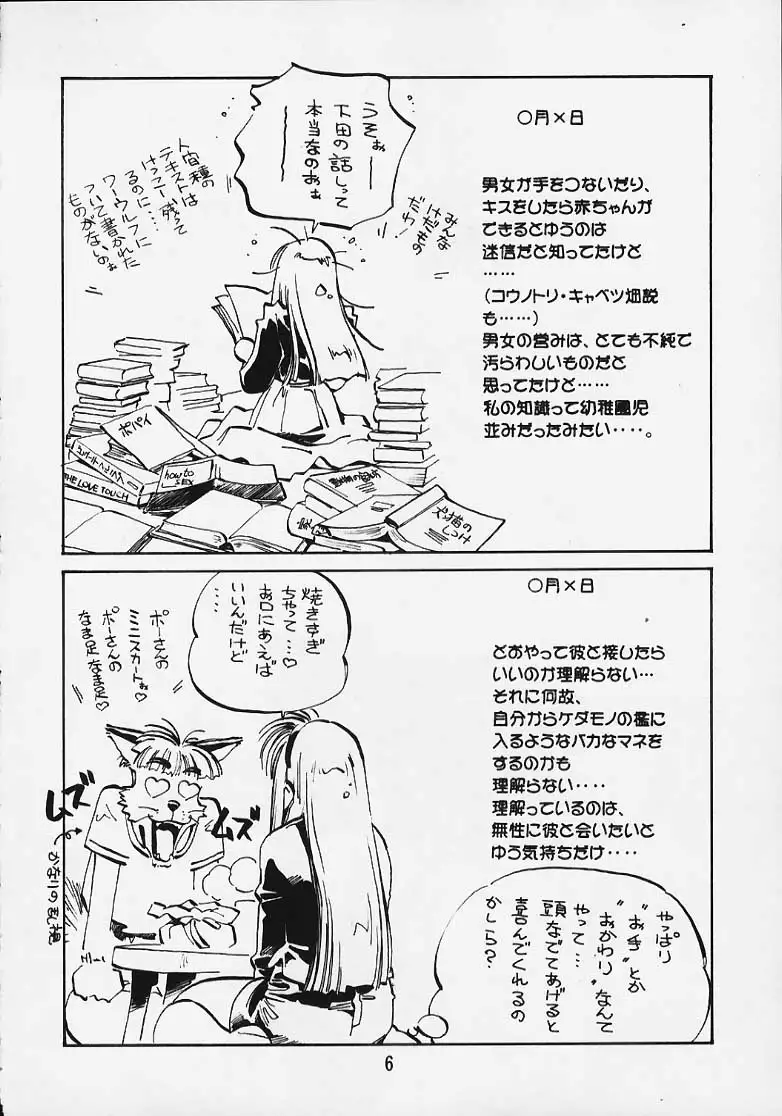 ○月×日
男女が手をつないだり、
キスをしたら赤ちゃんが
できるとゆうのは
迷信だと知ってたけど
……
(コウノトリ・キャベツ畑説
も……)
男女の営みは、とても不純で
汚らわしいものだと
思ってたけど……
私の知識って幼稚園児
並みだったみたい‥‥。
うそぉ——
下田の話しって
本当なのぉぉ
——
みんな
けだもの
だわ!
人間種の
テキストは
けっこー残って
るのに……
ワーウルフに
ついて書かれた
ものがないのぉ
ポパイ
how to
SEX
THE LOVE TOUCH
犬猫の
しつけ
○月×日
どおやって彼と接したら
いいのか理解らない…
それに何故、
自分からケダモノの檻に
入るようなバカなマネを
するのかも
理解らない‥‥
理解っているのは、
無性に彼と会いたいと
ゆう気持ちだけ‥‥
焼きすぎ
ちゃって…♡
お口にあえば
いいんだけど
……
ポーさんの
ミニスカートぉ♡
ポーさんの
なま足なま足♡
ムズ
ムズ
かなりの乱視
やっぱり
"お手"とか
"おかわり"なんて
やって…
頭なでてあげると
喜んでくれるの
かしら?
6